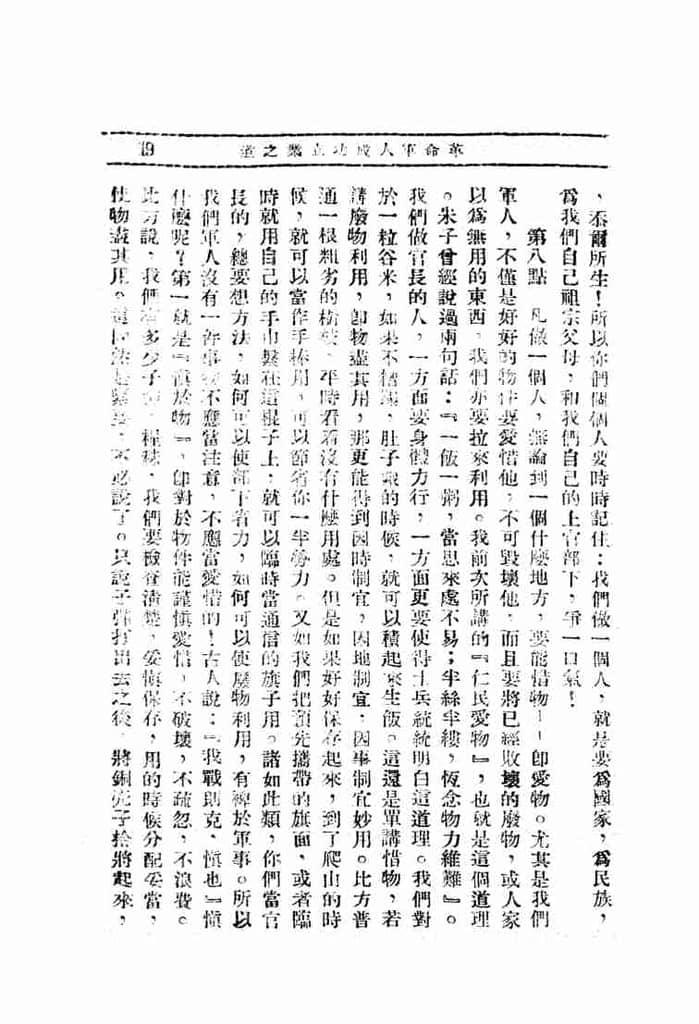 革命軍人成功立業之道
19
，忝爾所生！所以你們個個人要時時記住：我們做一個人，就是要爲國家，爲民族，
爲我們自己祖宗父母，和我們自己的上官部下，爭一口氣！
第八點　凡做一個人，無論到一個什麼地方，要能惜物——卽愛物。尤其是我們
軍人，不僅是好好的物件要愛惜他，不可毀壞他，而且要將已經敗壞的廢物，或人家
以爲無用的東西，我們亦要拉來利用。我前次所講的『仁民愛物』，也就是這個道理
。朱子曾經說過兩句話：『一飯一粥，當思來處不易；半絲半縷，恆念物力維難』。
我們做官長的人，一方面要身體力行，一方面更要使得士兵統統明白這道理。我們對
於一粒谷米，如果不糟蹋，肚子餓的時候，就可以積起來生飯。這還是單講惜物，若
講廢物利用，卽物盡其用，那更能得到因時制宜，因地制宜，因事制宜妙用。比方普
通一根粗劣的樹枝，平時看着沒有什麼用處。但是如果好好保存起來，到了爬山的時
候，就可以當作手棒用，可以節省你一半勞力。又如我們把預先攜帶的旗面，或者臨
時就用自己的手巾繫在這棍子上，就可以臨時當通信的旗子用。諸如此類，你們當官
長的，總要想方法，如何可以使部下省力，如何可以使廢物利用，有裨於軍事。所以
我們軍人沒有一件事物不應當注意，不應當愛惜的！古人說：『我戰則克，愼也』愼
什麼呢？第一就是『愼於物』，卽對於物件能謹愼愛惜，不破壞，不疏忽，不浪費。
比方說，我們有多少子彈，糧秣，我們要檢查淸楚，妥愼保存，用的時候分配妥當，
使物盡其用。這個法是緊要，不必說了。只說子彈打出去之後，將銅壳子拾將起來，